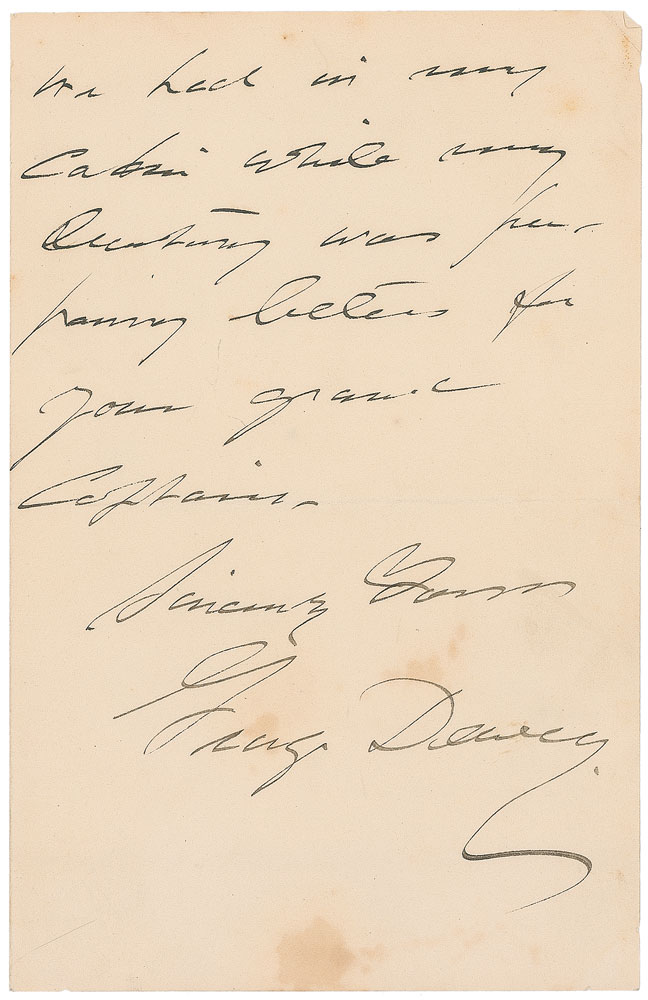 we had in my
Cabin while my
Secretary was pre-
paring letters for
your grand
Captain.
Sincerely Yours
George Dewey